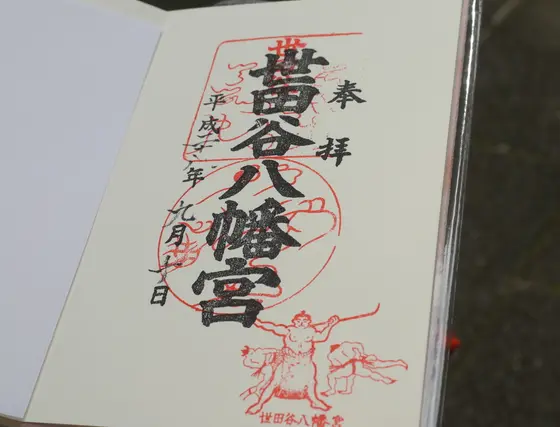 奉拝
世田谷八幡宮
年九月
日
世田谷八幡宮